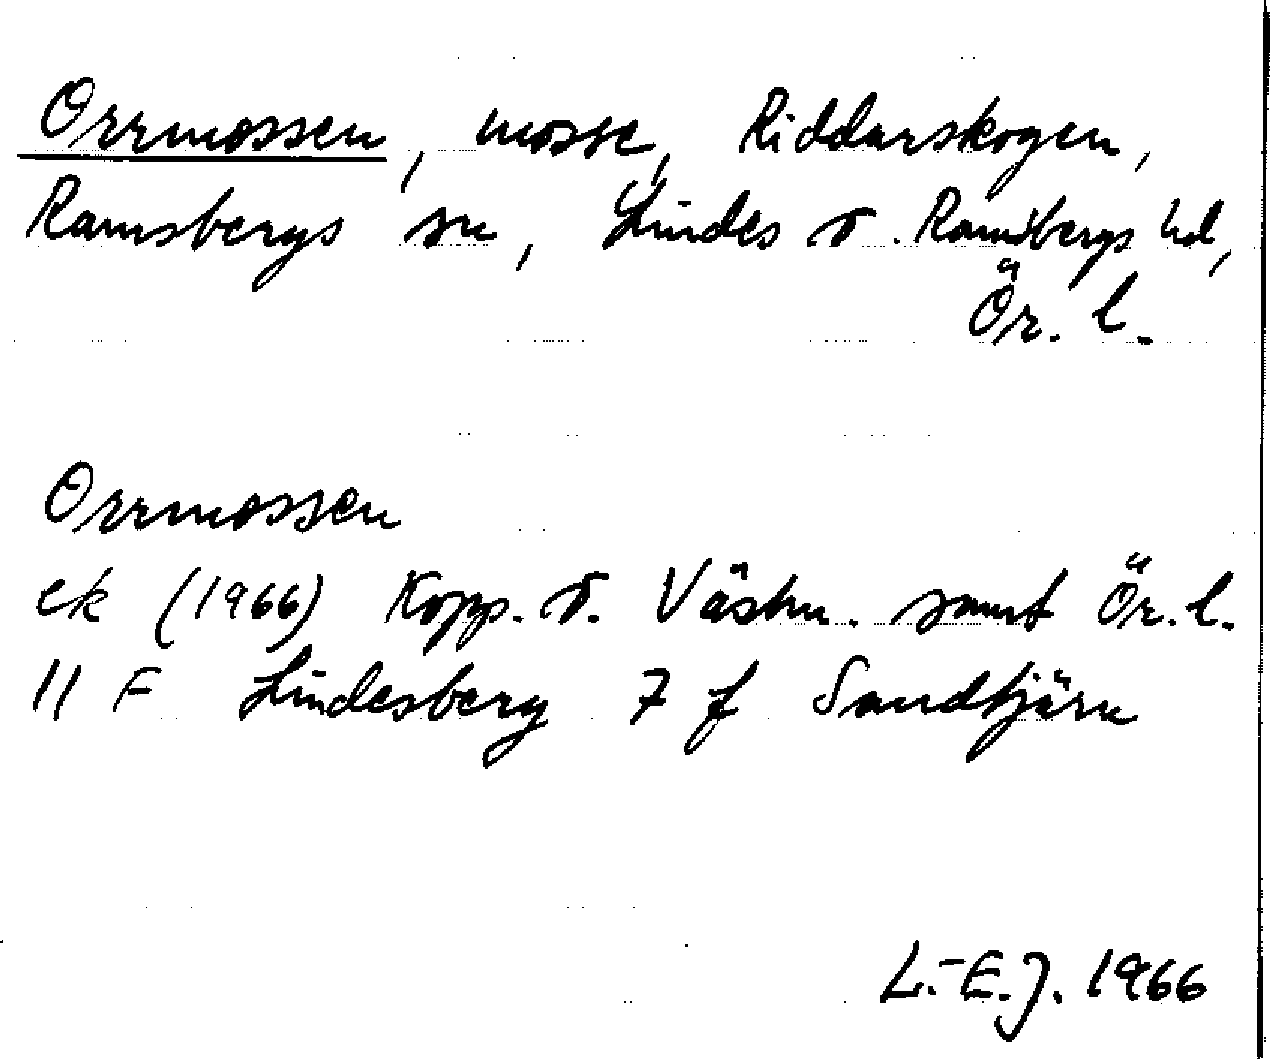 Orrmossen, mosse, Riddarskogen,
Ramsbergs sn, Lindes o. Ramsbergs hd,
Ör. l.
Orrmossen
ek (1966) Kopp. o. Västm. samt Ör. l.
11 F Lindesberg 7 f Sandtjärn
L.-E.J. 1966